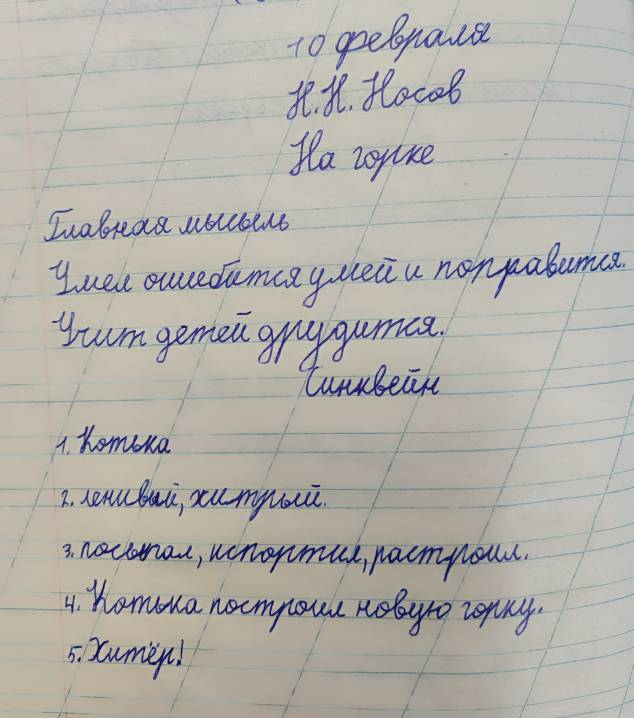 10 февраля
Н.Н. Носов
На горке
Главная мысыль
Умел ошебится умей и поправится.
Учит детей друдится.
Синквейн
1. Котька
2. ленивый, хитрый.
3. посыпал, испортил, растроил.
4. Котька построил новую горку.
5. Хитёр!